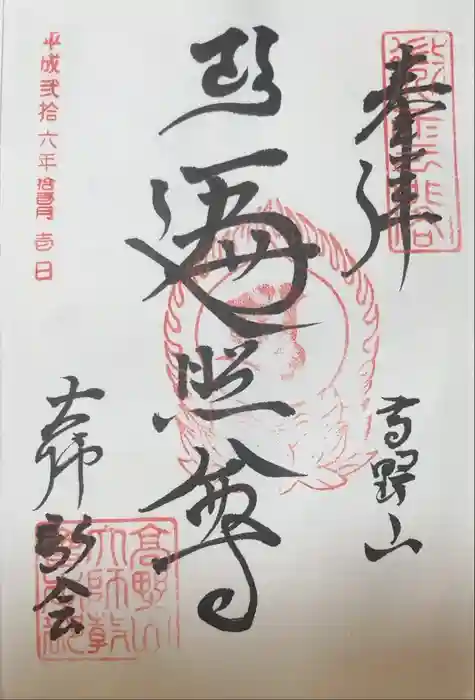 奉拝
高野山
遍照尊
大師
教会
高野山
大師教
平成弐拾六年
壱日